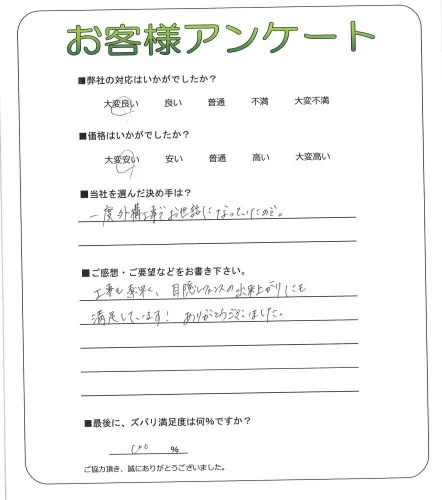 お客様アンケート
■弊社の対応はいかがでしたか？
大変良い 良い 普通 不満 大変不満
■価格はいかがでしたか？
大変安い 安い 普通 高い 大変高い
■当社を選んだ決め手は？
一度外構工事でお世話になっていたので。
■ご感想・ご要望などをお書き下さい。
工事も素早く、目隠しフェンスの出来上がりにも
満足しています！ありがとうございました。
■最後に、ズバリ満足度は何％ですか？
100 ％
ご協力頂き、誠にありがとうございました。